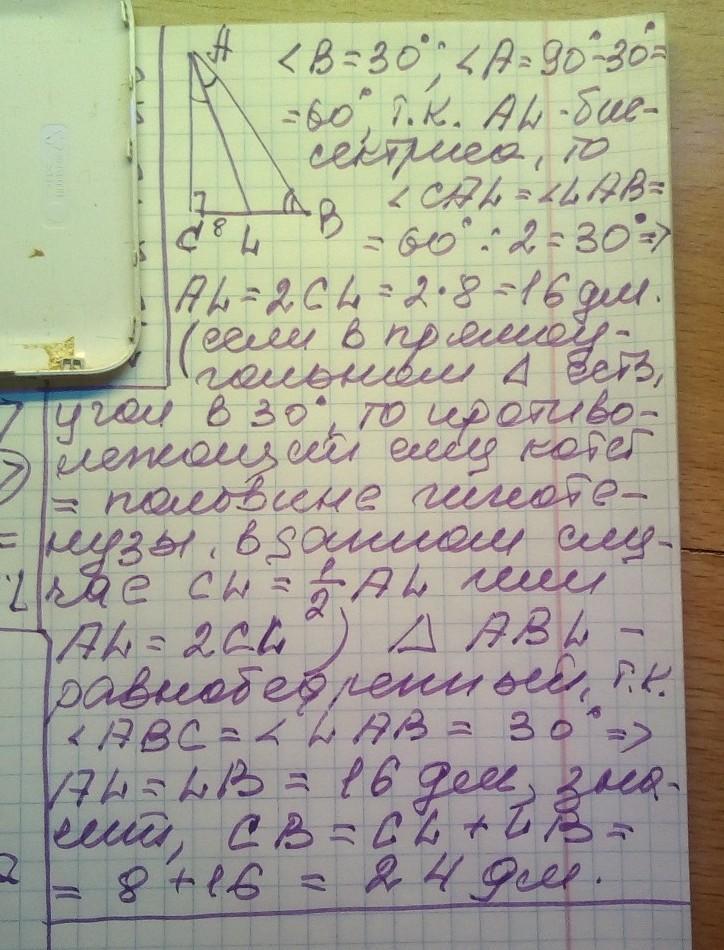 A
∠B = 30°; ∠A = 90°-30° =
= 60°, т.к. AL - бис-
сектриса, то
∠CAL = ∠LAB =
C 8 L B
= 60° : 2 = 30° =>
AL = 2CL = 2·8 = 16 дм.
(если в прямоу-
гольном Δ есть
угол в 30°, то противо-
лежащий ему катет
= половине гипоте-
нузы, в данном слу-
чае CL = 1/2 AL или
AL = 2CL) Δ ABL -
равнобедренный, т.к.
∠ABC = ∠LAB = 30° =>
AL = LB = 16 дм, зна-
чит, CB = CL + LB =
= 8 + 16 = 24 дм.